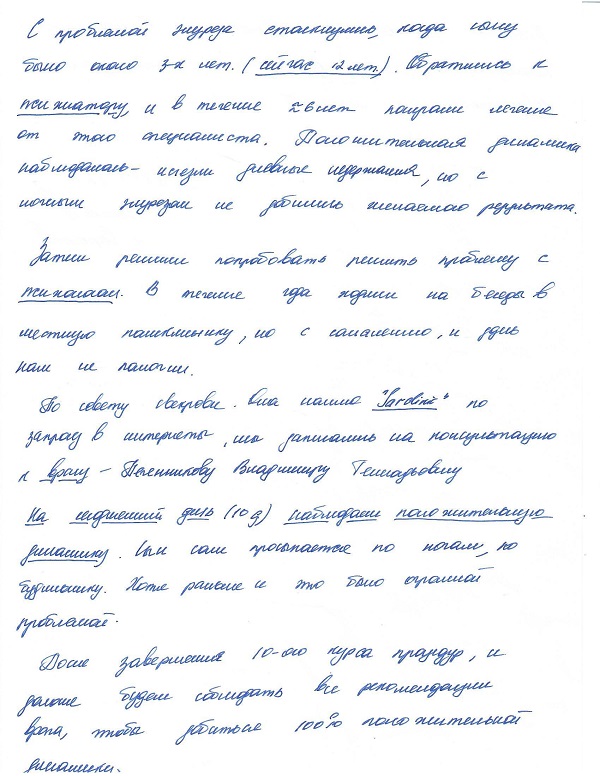 С проблемой энуреза столкнулись, когда сыну
было около 3-х лет. (сейчас 12 лет). Обратились к
психиатору, и в течение ≈ 6 лет получали лечение
от этого специалиста. Положительная динамика
наблюдалась – исчезли дневные недержания, но с
ночным энурезом не добились желаемого результата.
Затем решили попробовать решить проблему с
психологом. В течение года ходили на беседы в
местную поликлинику, но с сожалению, и здесь
нам не помогли.
По совету свекрови. Она нашла "Sarclinic" по
запросу в интернеты, мы записались на консультацию
к врачу – Владимиру Геннадьевичу
На сегодняшний день (10 д) наблюдаем положительную
динамику. Сын сам просыпается по ночам, по
будильнику. Хотя раньше и это было огромной
проблемой.
После завершения 10-ого курса процедур, и
дальше будем соблюдать все рекомендации
врача, чтобы добиться 100% положительной
динамики.